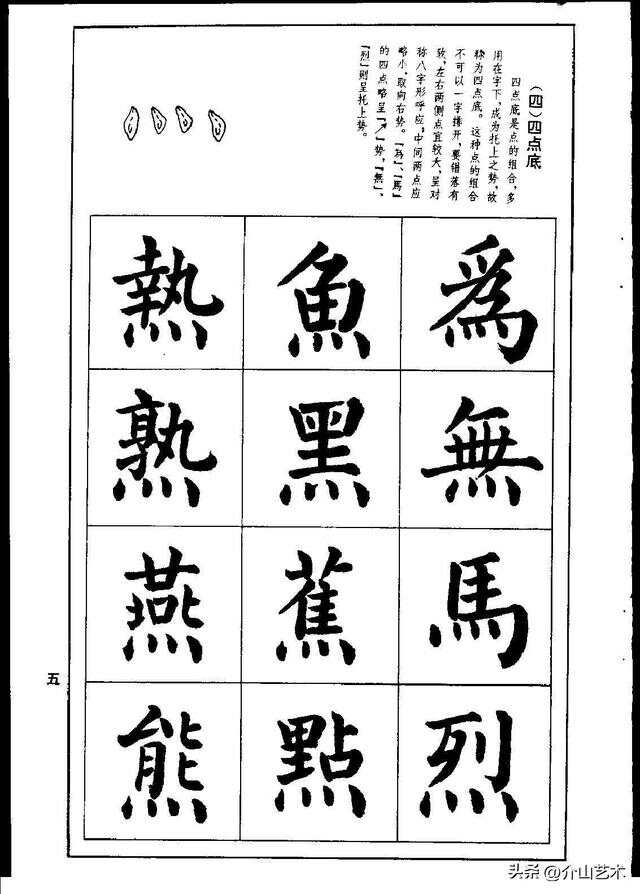 (四)四点底
四点底是点的组合,多
用在字下,成为托上之势,故
称为四点底。这种点的组合
不可以一字排开,要错落有
致,左右两侧点宜较大,呈对
称八字形呼应,中间两点应
略小,取向右势。『為』、『馬』
的四点略呈『↗』势,『無』、
『烈』则呈托上势。
爲無馬烈
魚黑蕉點
熱熟燕熊
五
头条 @介山艺术